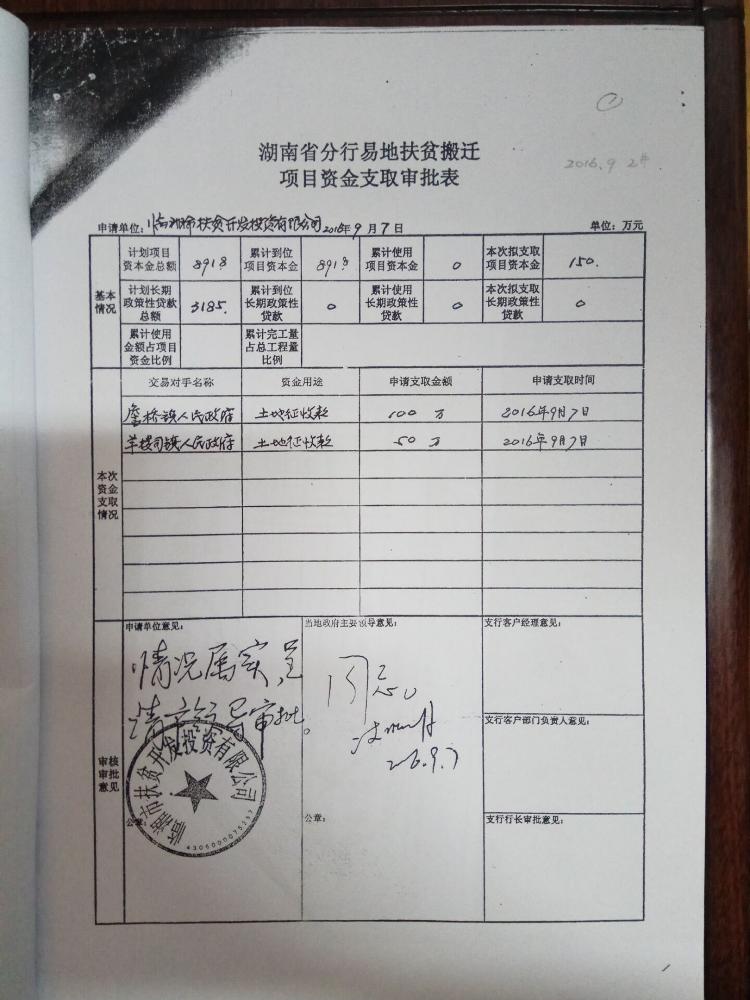 ①
湖南省分行易地扶贫搬迁
项目资金支取审批表
2016.9 2#
申请单位：临湘市扶贫开发投资有限公司 2016年9月7日 单位：万元
基本情况
计划项目资本金总额 8918 累计到位项目资本金 8918 累计使用项目资本金 0 本次拟支取项目资本金 150.
计划长期政策性贷款总额 3185. 累计到位长期政策性贷款 0 累计使用长期政策性贷款 0 本次拟支取长期政策性贷款 0
累计使用金额占项目资金比例 累计完工量占总工程量比例
本次资金支取情况
交易对手名称 资金用途 申请支取金额 申请支取时间
詹桥镇人民政府 土地征收款 100万 2016年9月7日
羊楼司镇人民政府 土地征收款 50万 2016年9月7日
审核审批意见
申请单位意见： 当地政府主要领导意见： 支行客户经理意见：
情况属实，呈
请 审批。
同意
9.7
支行客户部门负责人意见：
临湘市扶贫开发投资有限公司
公章： 公章： 支行行长审批意见：